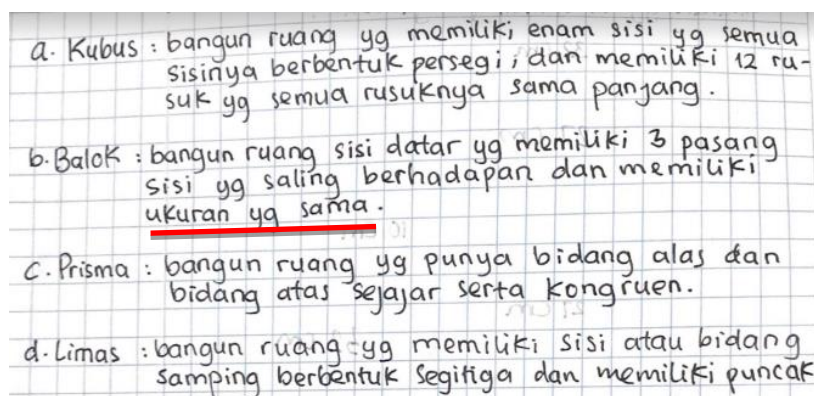 a. Kubus : bangun ruang yg memiliki enam sisi yg semua
sisinya berbentuk persegi, dan memiliki 12 ru-
suk yg semua rusuknya sama panjang.
b. Balok : bangun ruang sisi datar yg memiliki 3 pasang
sisi yg saling berhadapan dan memiliki
ukuran yg sama.
c. Prisma : bangun ruang yg punya bidang alas dan
bidang atas sejajar serta kongruen.
d. Limas : bangun ruang yg memiliki sisi atau bidang
samping berbentuk segitiga dan memiliki puncak